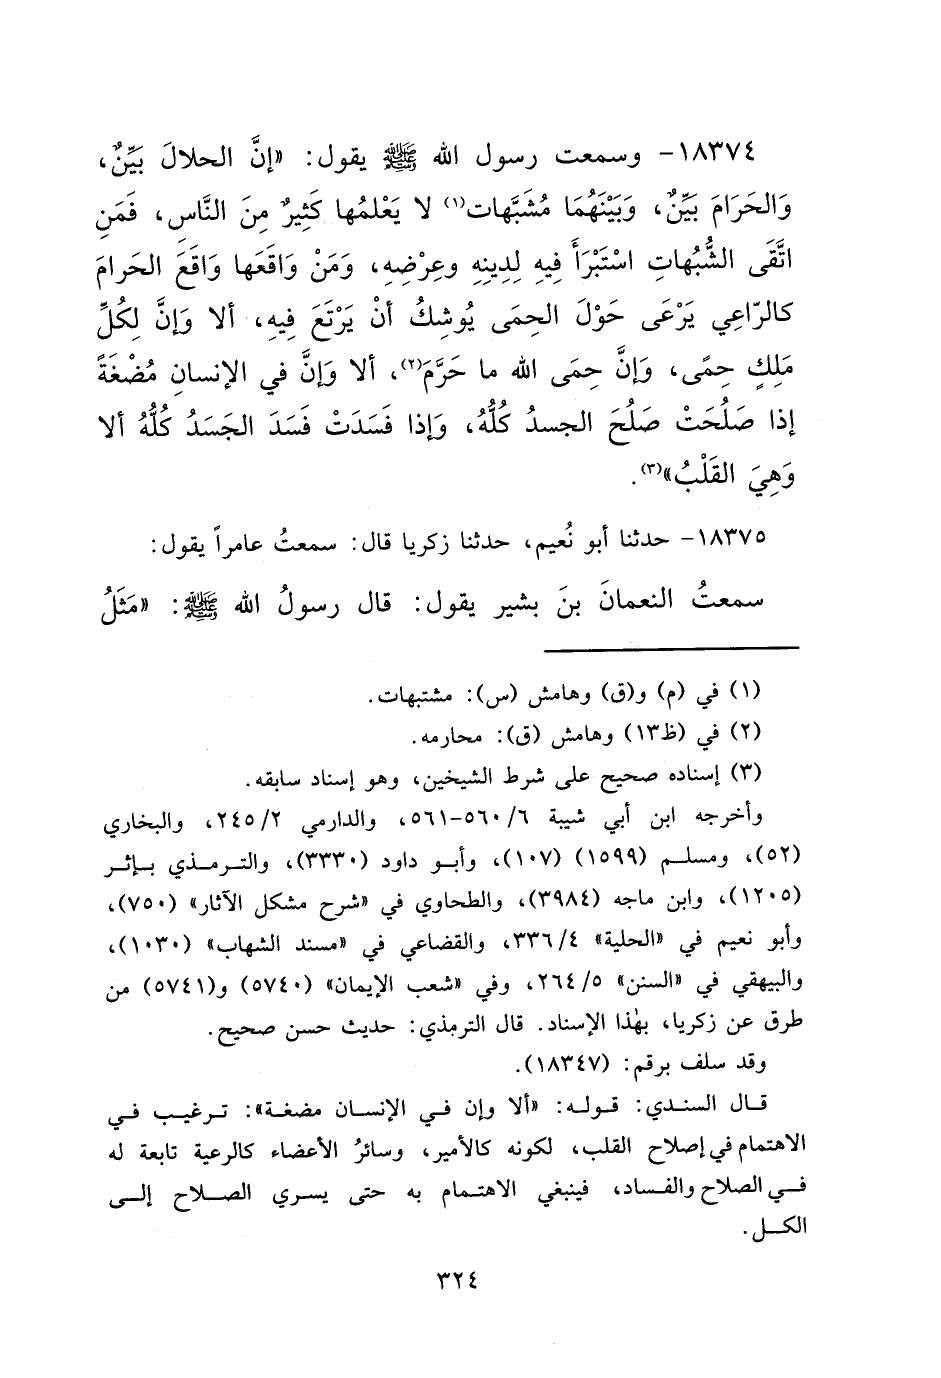 ١٨٣٧٤- وسمعت رسول الله ﷺ يقول: «إنَّ الحلالَ بَيِّنٌ،
وَالحَرَامَ بَيِّنٌ، وَبَيْنَهُمَا مُشَبَّهات(١) لا يَعْلمُها كَثِيرٌ مِنَ النَّاسِ، فَمَنِ
اتَّقَى الشُّبُهاتِ اسْتَبْرَأَ فِيهِ لِدِينِهِ وعِرْضِهِ، وَمَنْ وَاقَعَها وَاقَعَ الحَرامَ
كالرّاعِي يَرْعَى حَوْلَ الحِمَى يُوشِكُ أنْ يَرْتَعَ فِيهِ، ألا وَإنَّ لِكُلِّ
مَلِكٍ حِمًى، وَإنَّ حِمَى الله ما حَرَّمَ(٢)، ألا وَإنَّ في الإنسانِ مُضْغَةً
إذا صَلُحَتْ صَلُحَ الجسدُ كُلُّهُ، وَإذا فَسَدَتْ فَسَدَ الجَسَدُ كُلُّهُ ألا
وَهِيَ القَلْبُ»(٣).
١٨٣٧٥- حدثنا أبو نُعيم، حدثنا زكريا قال: سمعتُ عامراً يقول:
سمعتُ النعمانَ بنَ بشير يقول: قال رسولُ الله ﷺ: «مَثَلُ
(١) في (م) و(ق) وهامش (س): مشتبهات.
(٢) في (ظ١٣) وهامش (ق): محارمه.
(٣) إسناده صحيح على شرط الشيخين، وهو إسناد سابقه.
وأخرجه ابن أبي شيبة ٦/ ٥٦٠-٥٦١، والدارمي ٢/ ٢٤٥، والبخاري
(٥٢)، ومسلم (١٥٩٩) (١٠٧)، وأبو داود (٣٣٣٠)، والترمذي بإثر
(١٢٠٥)، وابن ماجه (٣٩٨٤)، والطحاوي في «شرح مشكل الآثار» (٧٥٠)،
وأبو نعيم في «الحلية» ٤/ ٣٣٦، والقضاعي في «مسند الشهاب» (١٠٣٠)،
والبيهقي في «السنن» ٥/ ٢٦٤، وفي «شعب الإيمان» (٥٧٤٠) و(٥٧٤١) من
طرق عن زكريا، بهٰذا الإسناد. قال الترمذي: حديث حسن صحيح.
وقد سلف برقم: (١٨٣٤٧).
قال السندي: قوله: «ألا وإن في الإنسان مضغة»: ترغيب في
الاهتمام في إصلاح القلب، لكونه كالأمير، وسائرُ الأعضاء كالرعية تابعة له
في الصلاح والفساد، فينبغي الاهتمام به حتى يسري الصلاح إلى
الكل.
٣٢٤